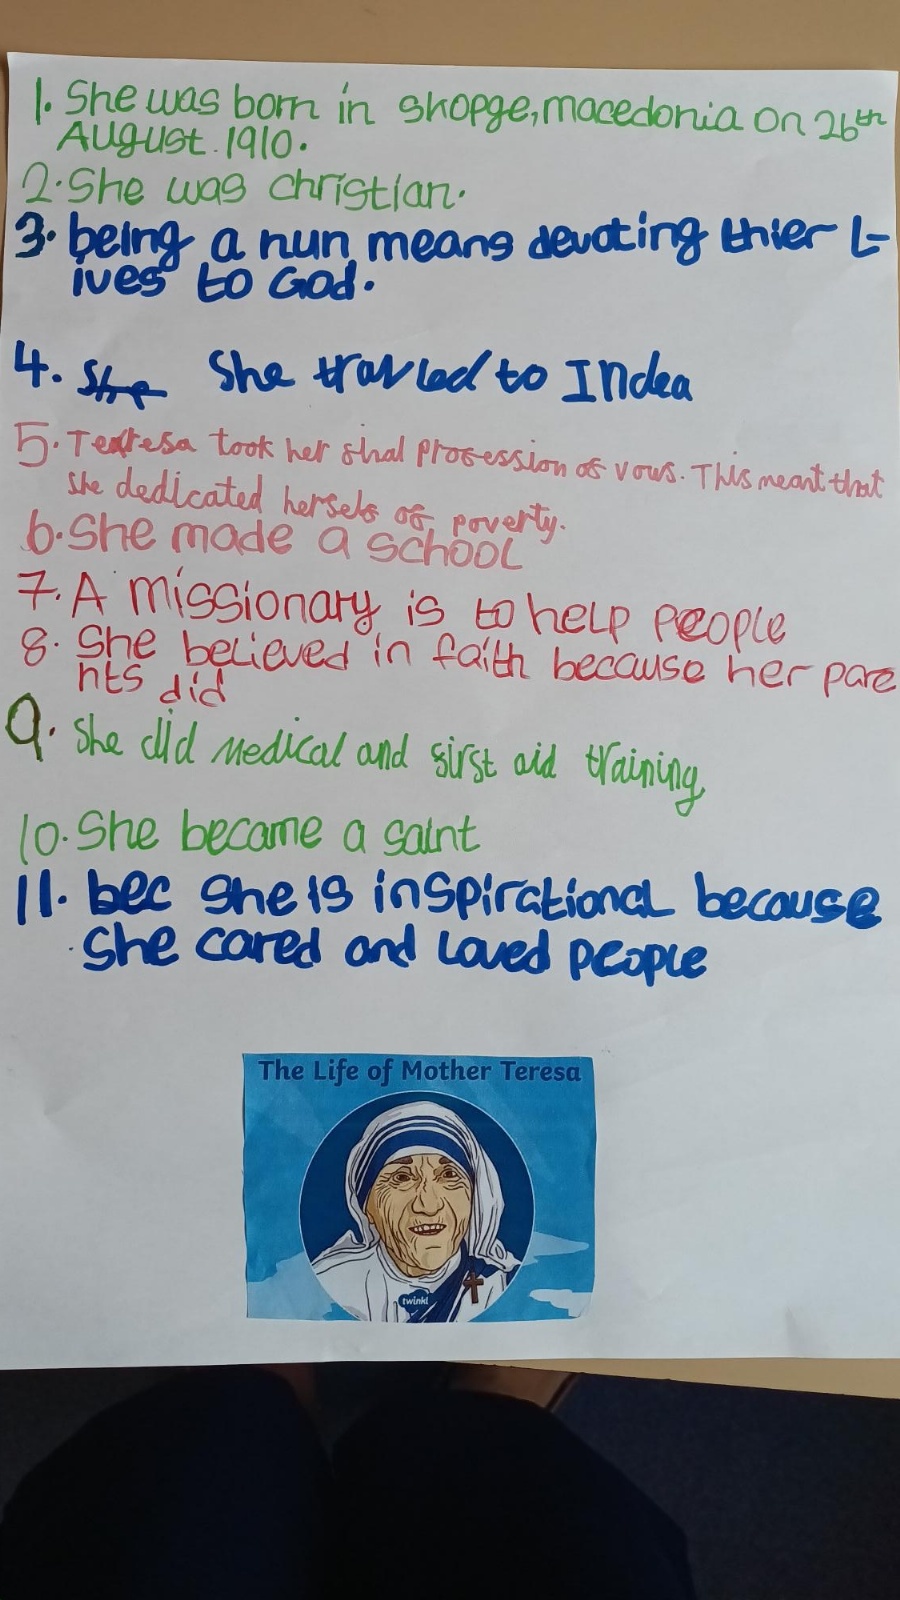 1. She was born in skopge, macedonia on 26th
August 1910.
2. She was christian.
3. being a nun means devoting thier L-
ives to God.
4. She She travled to Indea
5. Teresa took her sinal prosession os vows. This meant that
she dedicated herself of poverty.
6. She made a school
7. A missionary is to help people
8. She believed in faith because her pare
nts did
9. She did medical and sirst aid training
10. She became a saint
11. bec she is inspirational because
she cared and loved people
The Life of Mother Teresa
twinkl